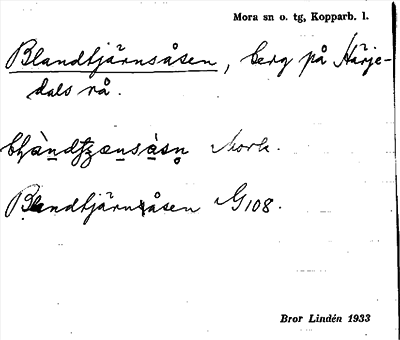 Mora sn o. tg, Kopparb. l.
Blandtjärnsåsen, berg på Härje-
dals rå.
Mork.
Blandtjärnsåsen G108.
Bror Lindén 1933